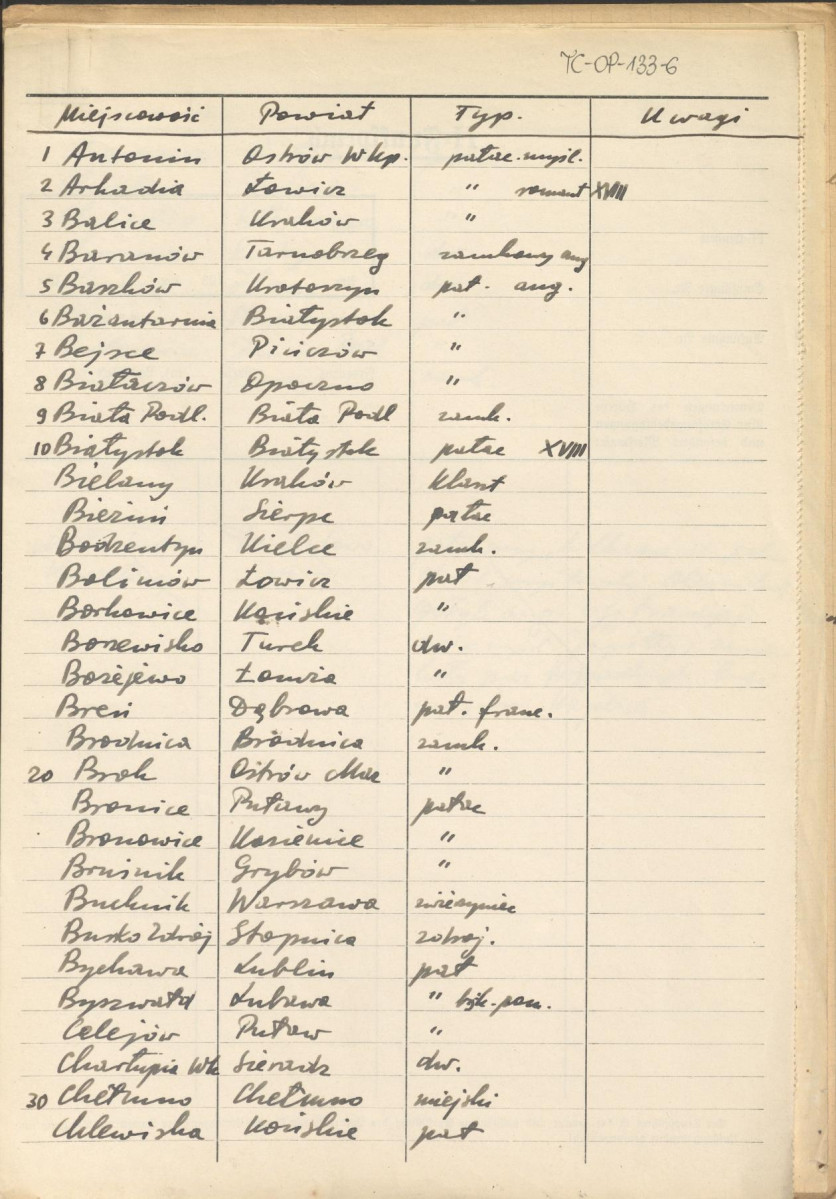 TC-OP-133-6
Miejscowość Powiat Typ. Uwagi
1 Antonin Ostrów Wkp. pałac. myśl.
2 Arkadia Łowicz " romant XVIII
3 Balice Kraków "
4 Baranów Tarnobrzeg zamkowy ang
5 Baszków Krotoszyn pał. ang.
6 Bażantarnia Białystok "
7 Bejsce Pińczów "
8 Białaczów Opoczno "
9 Biała Podl. Biała Podl zamk.
10 Białystok Białystok pałac XVIII
Bielany Kraków klaszt
Bieżuń Sierpc pałac
Bodzentyn Kielce zamk.
Bolimów Łowicz pał
Borkowice Końskie "
Borzewisko Turek dw.
Bożejewo Łomża "
Breń Dąbrowa pał. franc.
Brodnica Brodnica zamk.
20 Brok Ostrów Maz "
Bronice Puławy pałac
Bronowice Kozienice "
Bruśnik Grybów "
Buchnik Warszawa zwierzyniec
Busko Zdrój Stopnica zdroj.
Bychawa Lublin pał
Byszwałd Lubawa "
Celejów Puław "
Charłupia Wk Sieradz dw.
30 Chełmno Chełmno miejski
Chlewiska Końskie pał